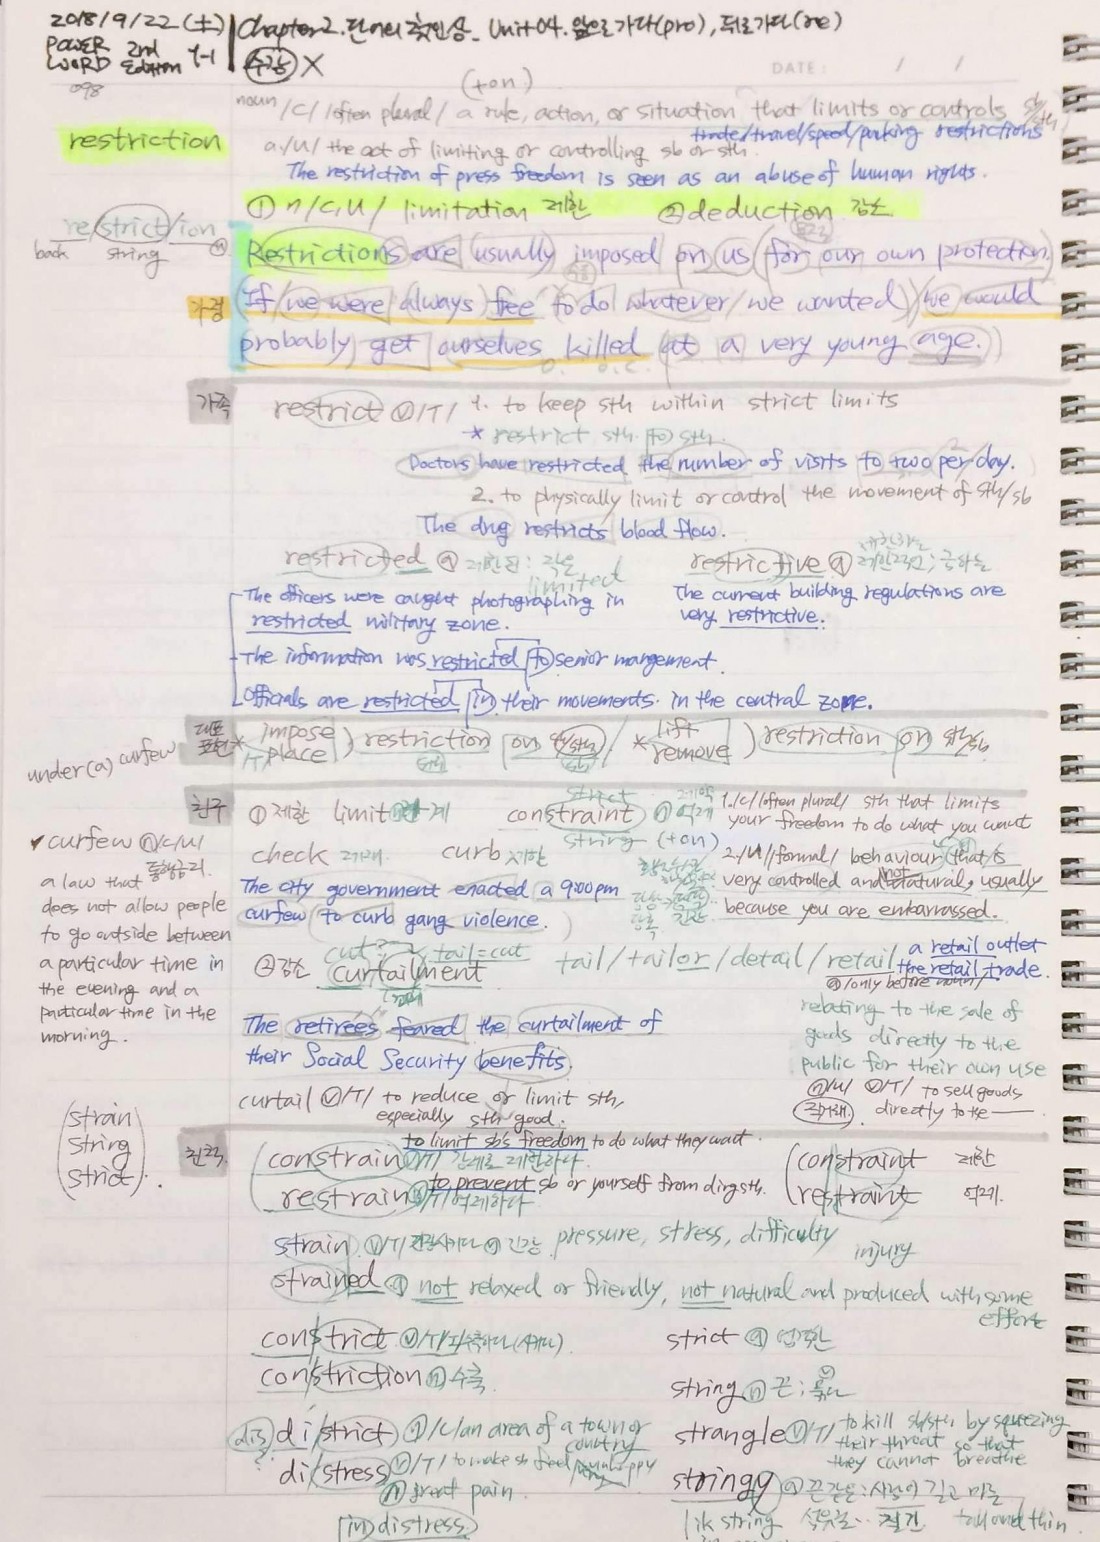 2018/9/22 (土) Chapter2. 단어의 확인송_ Unit 04. 앞으로 가다(pro), 뒤로 가다(re)
POWER WORD 2nd Edition 4-1
수능 X
DATE : / /
098
(+on)
noun /C/ /often plural/ a rule, action, or situation that limits or controls sb/sth
trade/travel/speed/parking restrictions
restriction
a./U/ the act of limiting or controlling sb or sth.
The restriction of press freedom is seen as an abuse of human rights.
① n/C,U/ limitation 제한 ② deduction 감소
re/strict/ion
back string n
Restrictions are usually imposed on us for our own protection.
가정 If we were always free to do whatever we wanted, we would
probably get ourselves killed at a very young age.
O. O.C.
가족 restrict ⓥ/T/ 1. to keep sth within strict limits
* restrict sth to sth.
Doctors have restricted the number of visits to two per day.
2. to physically limit or control the movement of sth/sb
The drug restricts blood flow.
restricted ⓐ 제한된: 작은 limited
restrictive ⓐ
The officers were caught photographing in
restricted military zone.
The current building regulations are
very restrictive.
The information was restricted to senior mangement.
Officials are restricted in their movements in the central zone.
대표표현 * impose /T/ place ) restriction on sb/sth / * lift remove ) restriction on sth/sb
under (a) curfew
친구 ① 제한 limit 한계 constraint ⓝ 억제
strict 제약
string (+on)
1./C/ /often plural/ sth that limits
your freedom to do what you want
check 견제 curb 제한
2./U/ /formal/ behaviour that is
very controlled and not natural, usually
because you are embarrassed.
The city government enacted a 9:00pm
curfew to curb gang violence.
✓ curfew ⓝ/C/U/
통행금지
a law that
does not allow people
to go outside between
a particular time in
the evening and a
particular time in the
morning.
② 감소 curtailment
cut tail = cut
억제
tail / tailor / detail / retail
a retail outlet
the retail trade.
ⓐ/only before noun/
relating to the sale of
goods directly to the
public for their own use
ⓝ/U/ ⓥ/T/ to sell goods
directly to the —
The retirees feared the curtailment of
their Social Security benefits.
curtail ⓥ/T/ to reduce or limit sth,
especially sth good.
(strain
string
strict).
친척 constrain ⓥ/T/ 강제로 제한하다
to limit sb's freedom to do what they want.
restrain ⓥ/T/ 억제하다
to prevent sb or yourself from doing sth.
constraint 제한
restraint 억제.
strain ⓥ/T/ 긴장시키다 ⓝ 긴장 pressure, stress, difficulty
injury
strained ⓐ not relaxed or friendly, not natural and produced with some
effort
constrict ⓥ/T/ 수축하다(시키다)
strict ⓐ 엄격한
constriction ⓝ 수축
string ⓝ 끈; ⓥ 묶다
dis di/strict ⓝ/C/ an area of a town or
country
strangle ⓥ/T/ to kill sb/sth by squeezing
their throat so that
they cannot breathe
di/stress ⓥ/T/ to make sb feel very unhappy
ⓝ great pain.
stringy ⓐ 끈같은: 사람이 길고 마른
[in] distress
lik string tall and thin.